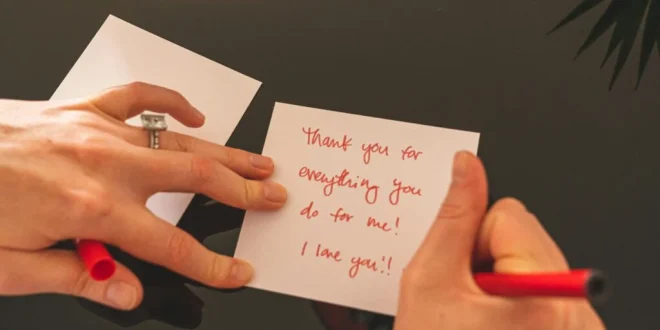 Thank you for
everything you
do for me!
I love you!!